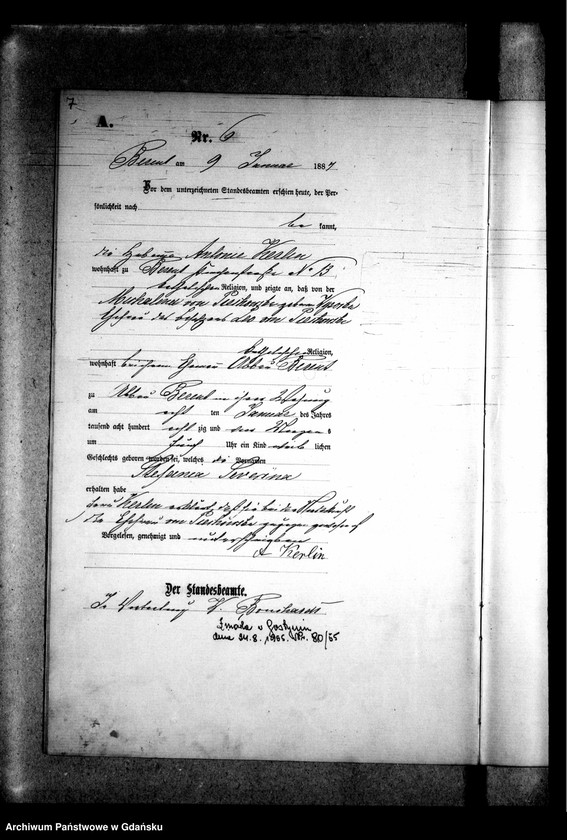 7
A.
Nr. 6
Berent am 9 Januar 1887
Vor dem unterzeichneten Standesbeamten erschien heute, der Per-
sönlichkeit nach
be kannt,
die Hebamme Antonie Kerlin
wohnhaft zu Berent No 13
katholischer Religion, und zeigte an, daß von der
Michalina von Piechowska geboren
Ehefrau des Besitzers Leo von Piechowski
katholischer Religion,
wohnhaft bei ihrem Ehemann Abbau Berent
zu Abbau Berent in ihrer Wohnung
am acht ten Januar des Jahres
tausend acht hundert acht zig und des Morgens
um fünf Uhr ein Kind weib lichen
Geschlechts geboren worden sei, welches die Vornamen
Stefania Severina
erhalten habe
Frau Kerlin erklärt, daß sie bei der Niederkunft
der Ehefrau von Piechowska zugegen gewesen
Vorgelesen, genehmigt und unterschrieben
A Kerlin
Der Standesbeamte.
In Vertretung
Zmarła w Kościerzynie
dnia 24.8.1955. Nr. 80/55
Archiwum Państwowe w Gdańsku